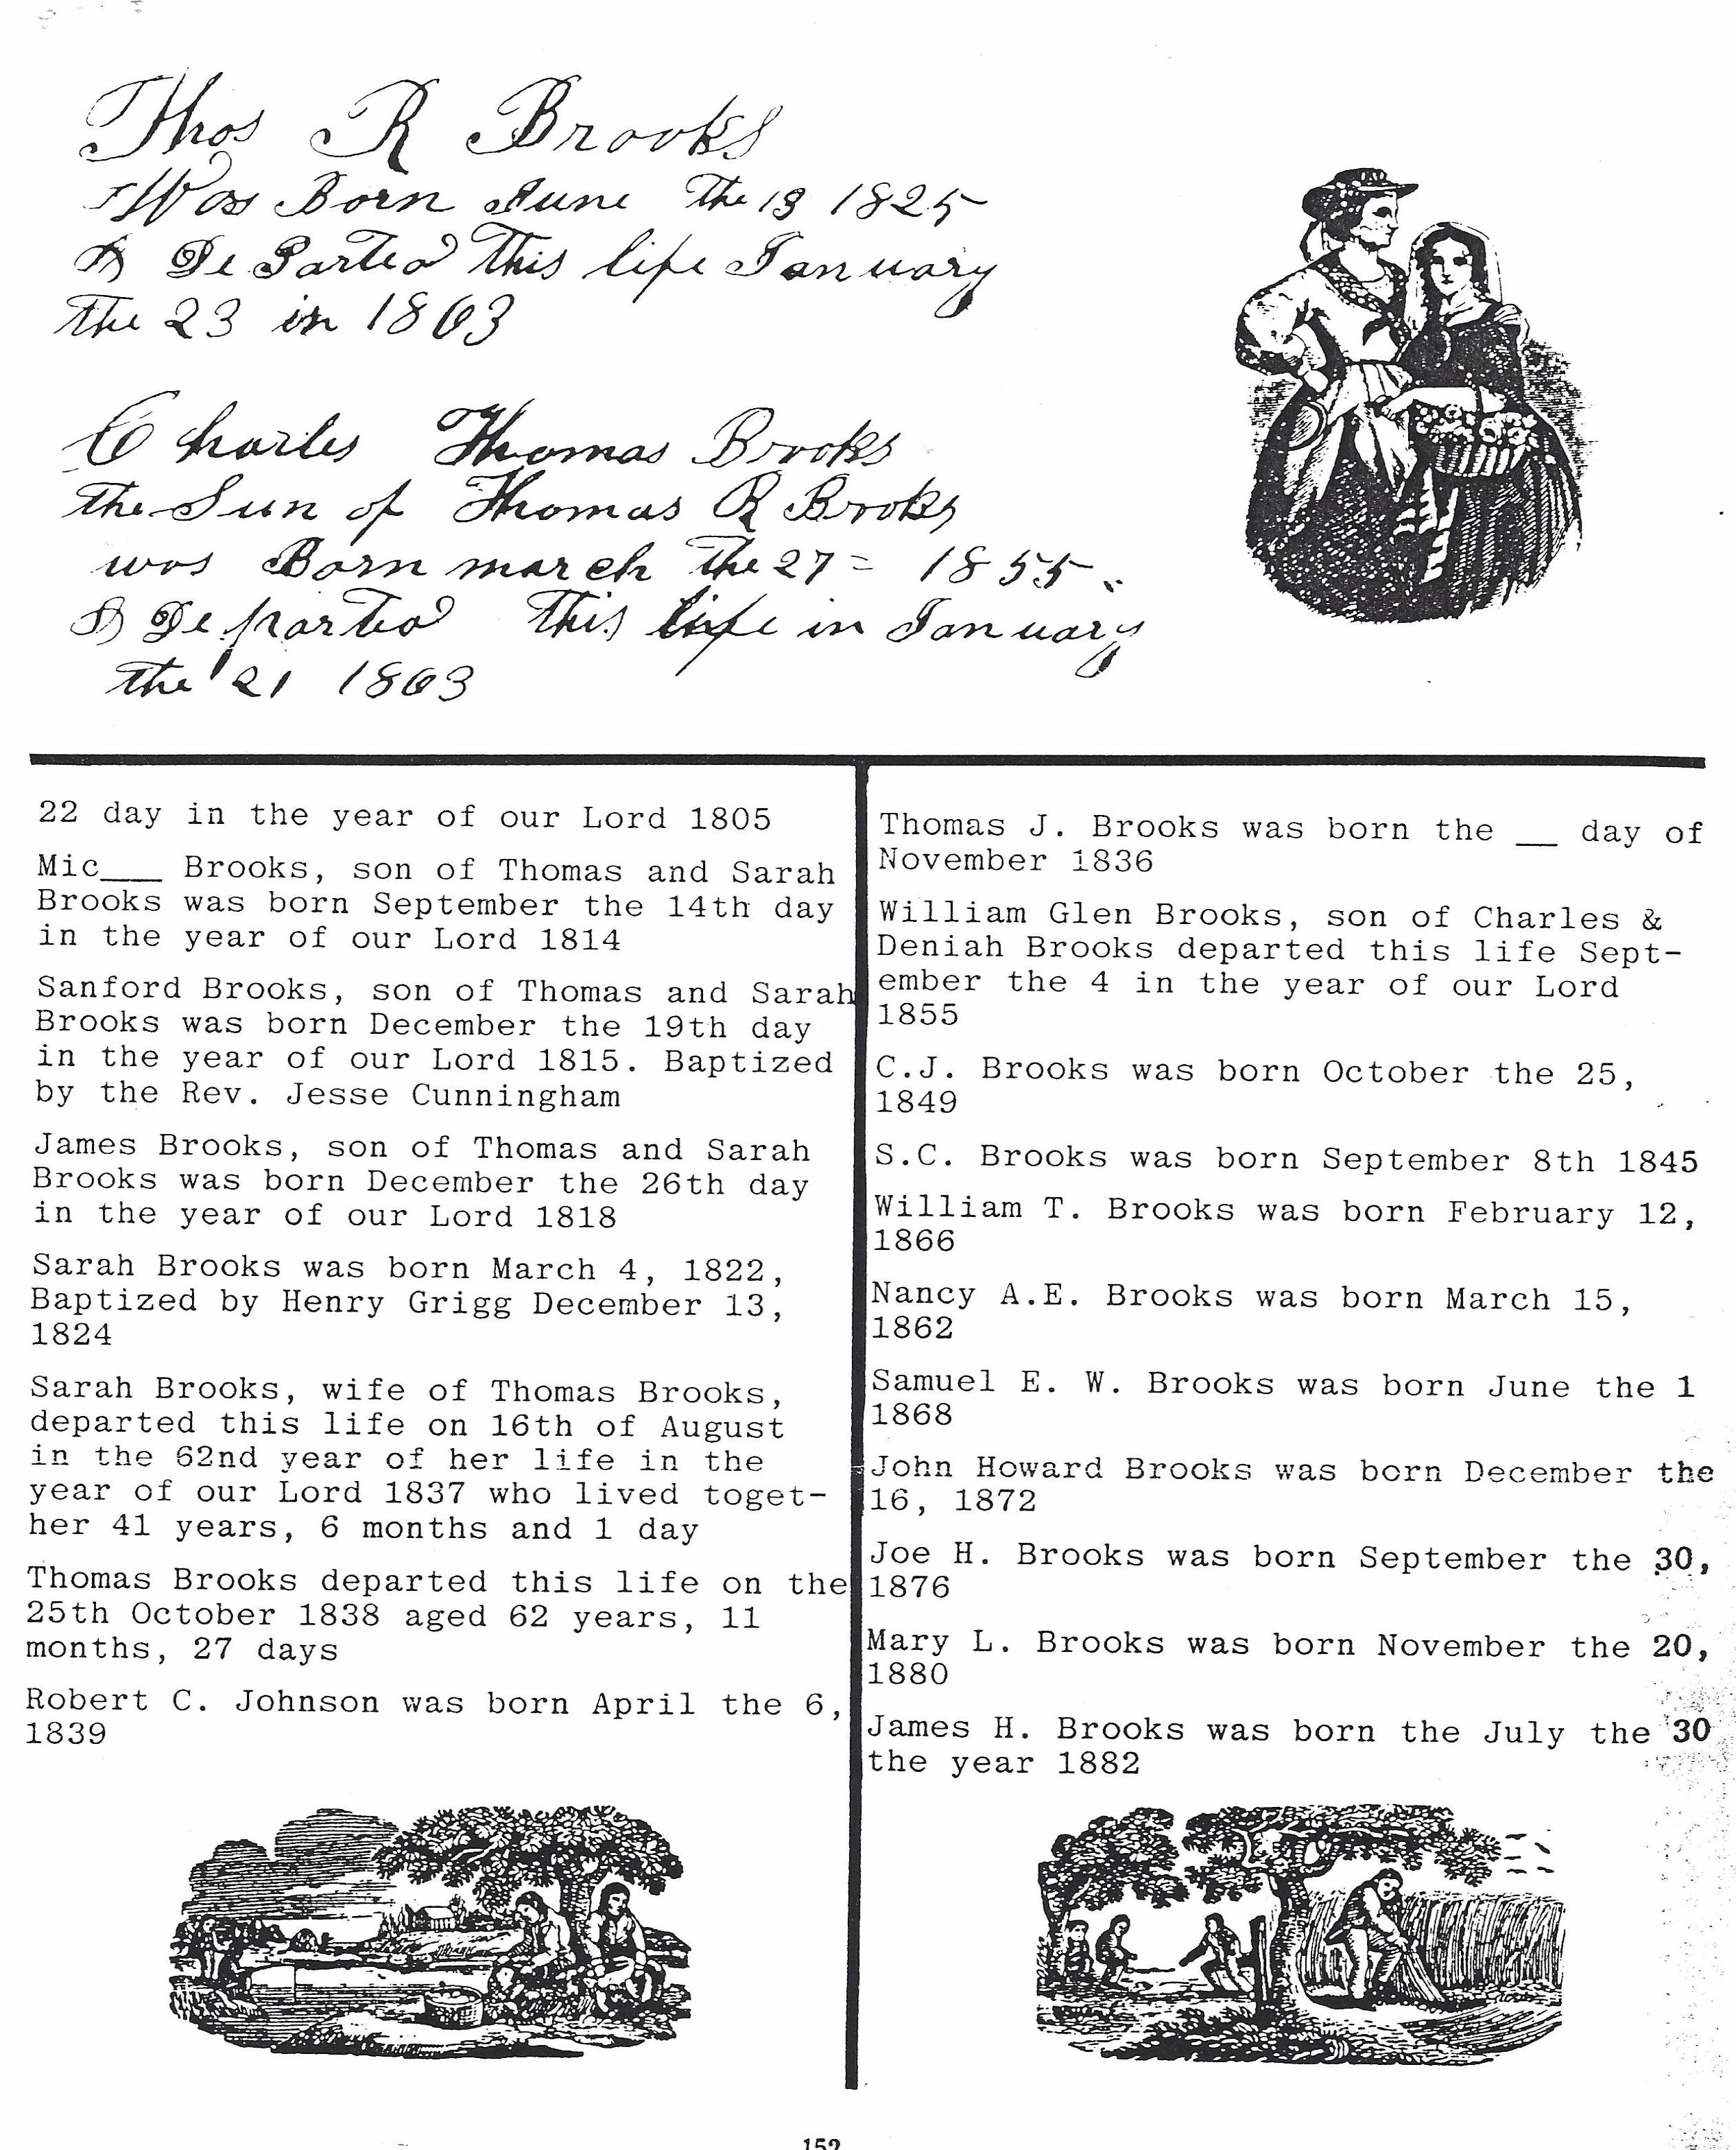 Thos R Brooks
Was Born June the 13 1825
& De Parted This life January
the 23 in 1863
Charles Thomas Brooks
the Sun of Thomas R Brooks
was Born march the 27 = 1855
& De parted This life in January
the 21 1863
22 day in the year of our Lord 1805
Mic___ Brooks, son of Thomas and Sarah
Brooks was born September the 14th day
in the year of our Lord 1814
Sanford Brooks, son of Thomas and Sarah
Brooks was born December the 19th day
in the year of our Lord 1815. Baptized
by the Rev. Jesse Cunningham
James Brooks, son of Thomas and Sarah
Brooks was born December the 26th day
in the year of our Lord 1818
Sarah Brooks was born March 4, 1822,
Baptized by Henry Grigg December 13,
1824
Sarah Brooks, wife of Thomas Brooks,
departed this life on 16th of August
in the 62nd year of her life in the
year of our Lord 1837 who lived toget-
her 41 years, 6 months and 1 day
Thomas Brooks departed this life on the
25th October 1838 aged 62 years, 11
months, 27 days
Robert C. Johnson was born April the 6,
1839
Thomas J. Brooks was born the __ day of
November 1836
William Glen Brooks, son of Charles &
Deniah Brooks departed this life Sept-
ember the 4 in the year of our Lord
1855
C.J. Brooks was born October the 25,
1849
S.C. Brooks was born September 8th 1845
William T. Brooks was born February 12,
1866
Nancy A.E. Brooks was born March 15,
1862
Samuel E. W. Brooks was born June the 1
1868
John Howard Brooks was born December the
16, 1872
Joe H. Brooks was born September the 30,
1876
Mary L. Brooks was born November the 20,
1880
James H. Brooks was born the July the 30
the year 1882
152